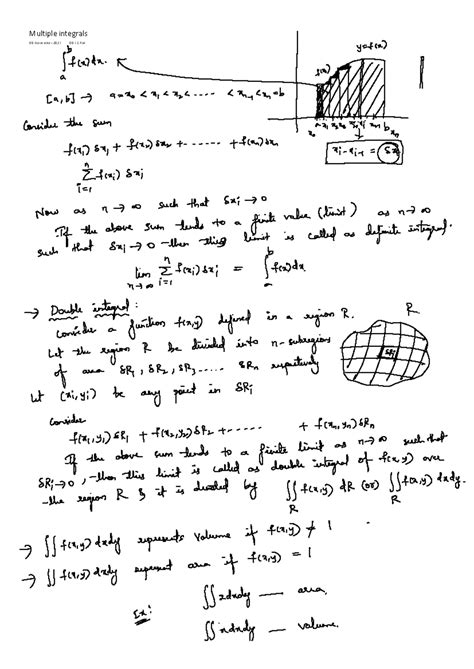 Multiple integrals
∫_a^b f(x) dx.
y=f(x)
f(x)
[a,b] → a=x₀ < x₁ < x₂ < ...... < xₙ₋₁ < xₙ = b
xᵢ - xᵢ₋₁ = δxᵢ
Consider the sum
f(x₁) δx₁ + f(x₂) δx₂ + - - - - - - + f(xₙ) δxₙ
Σ_{i=1}^n f(xᵢ) δxᵢ
Now as n → ∞ such that δxᵢ → 0
If the above sum tends to a finite value (limit) as n → ∞
such that δxᵢ → 0 then this limit is called as definite integral.
lim_{n→∞} Σ_{i=1}^n f(xᵢ) δxᵢ = ∫_a^b f(x) dx
→ Double integral :
Consider a function f(x,y) defined in a region R.
R
Let the region R be divided into n-subregions
of area δR₁, δR₂, δR₃ ..... δRₙ respectively
δRᵢ
Let (xᵢ, yᵢ) be any point in δRᵢ
Consider
f(x₁,y₁) δR₁ + f(x₂,y₂) δR₂ + - - - - - - + f(xₙ,yₙ) δRₙ
If the above sum tends to a finite limit as n → ∞ such that
δRᵢ → 0, then this limit is called as double integral of f(x,y) over
the region R & it is denoted by ∬_R f(x,y) dR (or) ∬_R f(x,y) dxdy.
→ ∬ f(x,y) dxdy represents volume if f(x,y) ≠ 1
→ ∬ f(x,y) dxdy represent area if f(x,y) = 1
Ex: ∬ 2dxdy — area.
∬ xdxdy — volume.